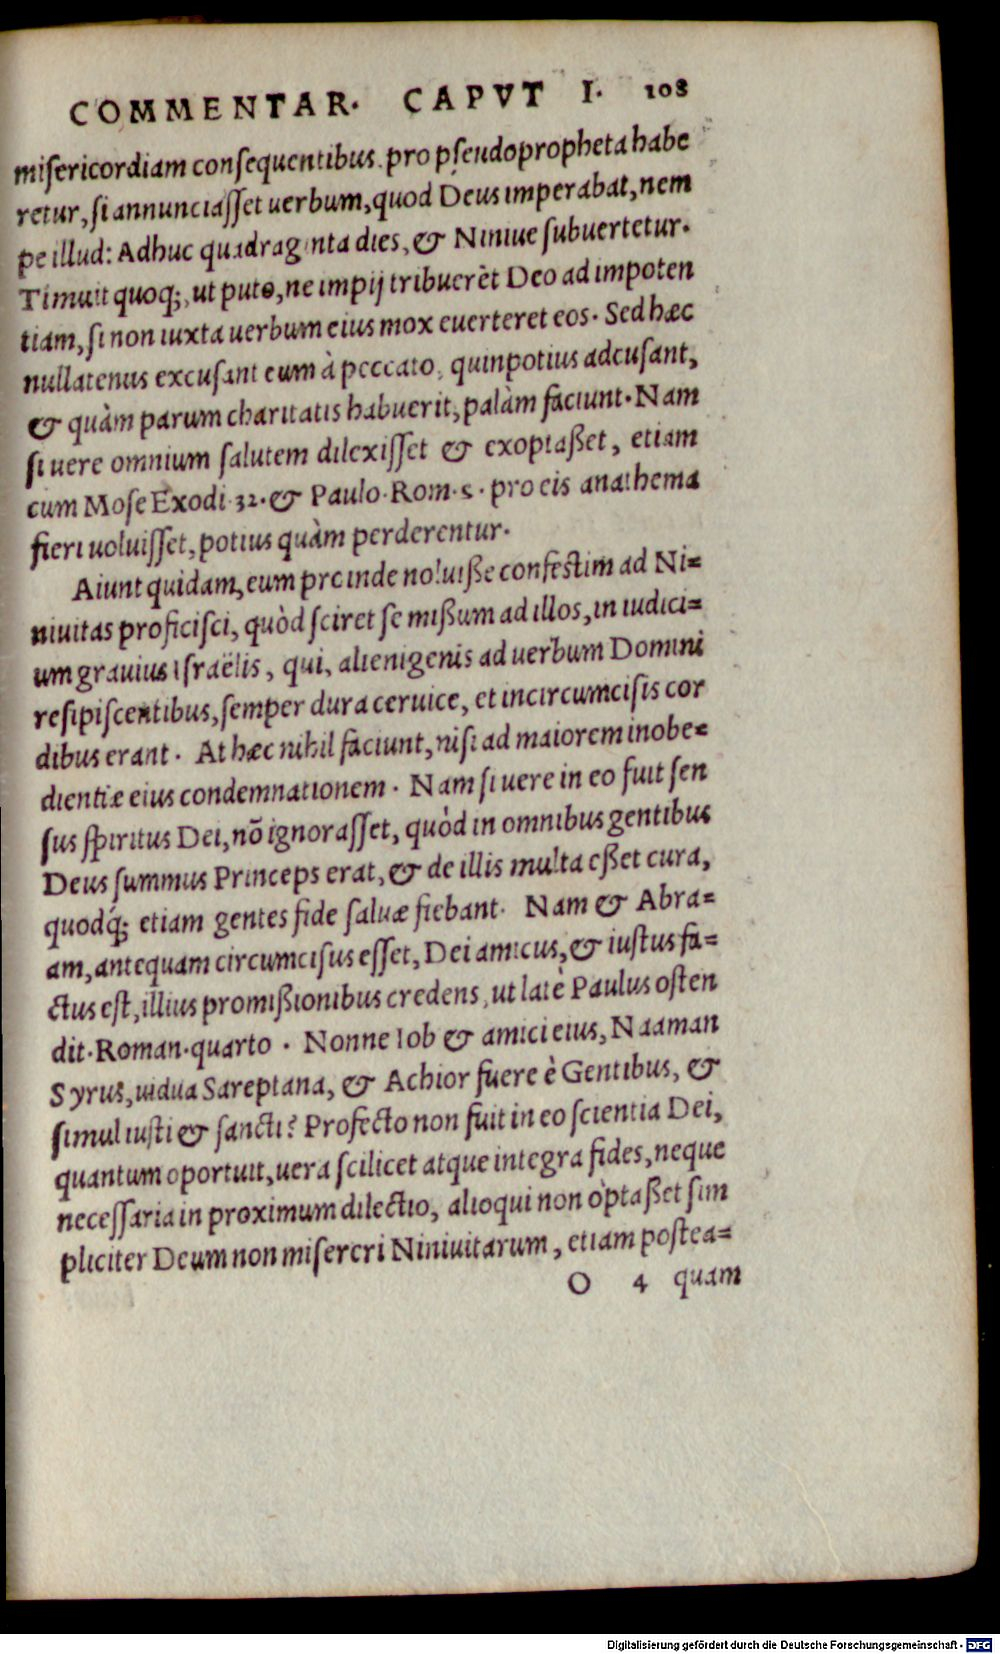 COMMENTAR. CAPVT I. 108
misericordiam consequentibus. pro pseudopropheta habe
retur, si annunciasset uerbum, quod Deus imperabat, nem
pe illud: Adhuc quadraginta dies, & Niniue subuertetur.
Timuit quoq;, ut puto, ne impij tribuerēt Deo ad impoten
tiam, si non iuxta uerbum eius mox euerteret eos. Sed hæc
nullatenus excusant eum à peccato, quinpotius adcusant,
& quàm parum charitatis habuerit, palàm faciunt. Nam
si uere omnium salutem dilexisset & exoptaßet, etiam
cum Mose Exodi 32. & Paulo. Rom. 5. pro eis anathema
fieri uoluisset, potius quàm perderentur.
Aiunt quidam, eum proinde noluiße confestim ad Ni=
niuitas proficisci, quòd sciret se mißum ad illos, in iudici=
um grauius Israëlis, qui, alienigenis ad uerbum Domini
resipiscentibus, semper dura ceruice, et incircumcisis cor
dibus erant. At hæc nihil faciunt, nisi ad maiorem inobe=
dientiæ eius condemnationem. Nam si uere in eo fuit sen
sus spiritus Dei, nō ignorasset, quòd in omnibus gentibus
Deus summus Princeps erat, & de illis multa eßet cura,
quodq́; etiam gentes fide saluæ fiebant. Nam & Abra=
am, antequam circumcisus esset, Dei amicus, & iustus fa=
ctus est, illius promißionibus credens, ut latè Paulus osten
dit. Roman. quarto. Nonne Iob & amici eius, Naaman
Syrus, uidua Sareptana, & Achior fuere è Gentibus, &
simul iusti & sancti? Profecto non fuit in eo scientia Dei,
quantum oportuit, uera scilicet atque integra fides, neque
necessaria in proximum dilectio, alioqui non optaßet sim
pliciter Deum non misereri Niniuitarum, etiam postea=
O 4 quam
Digitalisierung gefördert durch die Deutsche Forschungsgemeinschaft - DFG